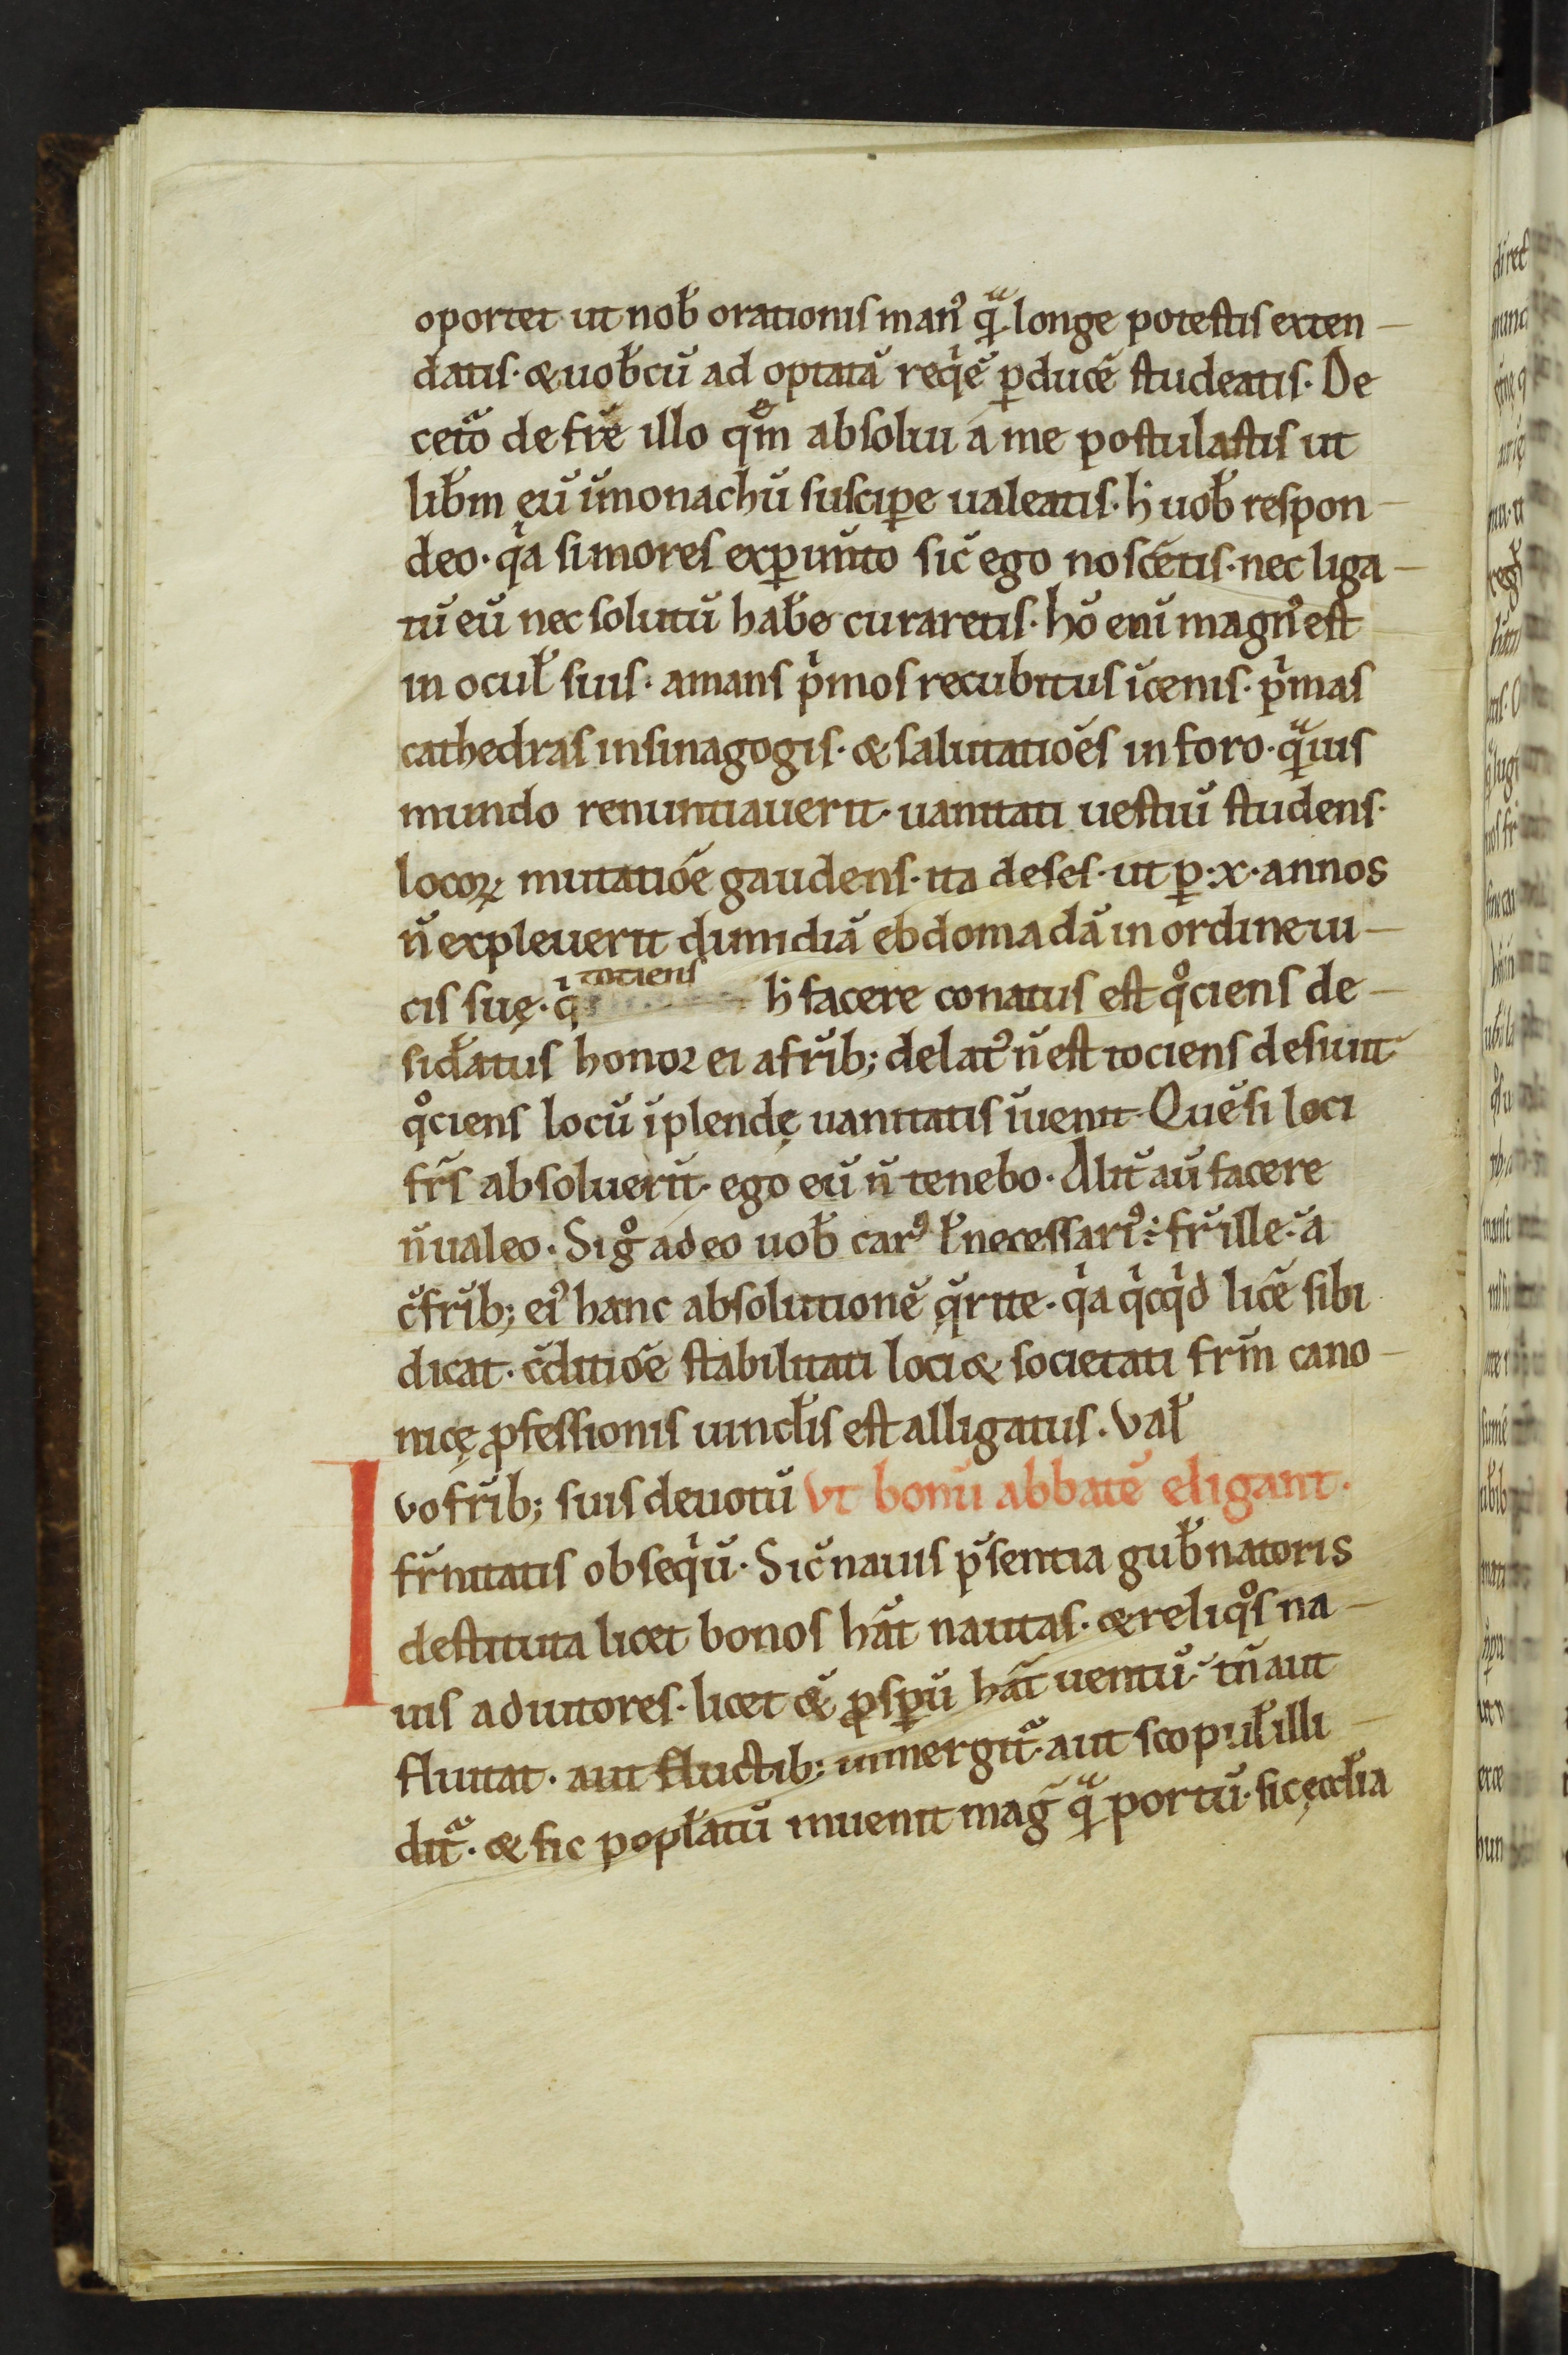 oportet ut nob̃ orationis man᷒ qᷓ longe potestis exten-
datis· & uob̃cũ ad optatã reqⁱẽ ꝑducẽ studeatis· De
cetᷓo de frẽ illo quͤm absolui a me postulastis ut
lib̃m eũ ĩmonachũ suscipe ualeatis· h̃ uob̃ respon-
deo· qⁱa si mores exꝑimto sic̃ ego noscẽtis· nec liga-
tũ eũ nec solutũ hab̃e curaretis· hõ enĩ magn᷒ est
in ocul̃ suis· amans pⁱmos recubitus ĩcenis· pⁱmas
cathedras insinagogis· & salutatiões in foro· qᷓuis
mundo renuntiauerit· uanitati uestiũ studens·
locoꝝ mutatiõe gaudens· ita deses· ut ꝑ ·x· annos
ñ expleuerit dimidiã ebdomadã in ordine ui-
cis suę· qⁱ totiens h̃ facere conatus est qͦciens de-
sid̃atus honor ei a frĩb; delat᷒ ñ est tociens desiuit
qͦciens locũ ĩplendę uanitatis ĩuenit· Quẽ si loci
frs̃ absoluerũt· ego eũ ñ tenebo· Alit̃ aũ facere
ñ ualeo· Si gͦ adeo uob̃ car᷒ ł necessari᷒ ÷ fr̃ ille· a
c̃frĩb; ei᷒ hanc absolutionẽ q̃rite· qⁱa qⁱcqⁱd licẽ sibi
dicat· c̃ditiõe stabilitati loci & societati frm̃ cano-
nicę ꝓfessionis uincl̃is est alligatus· Val̃
Ivo frĩb; suis deuotũ Vt bonũ abbatẽ eligant·
fr̃nitatis obseqⁱũ· Sic̃ nauis p̃sentia gub̃natoris
destituta licet bonos hãt nautas· & reliqͦs na-
uis adiutores· licet & ꝓsꝑũ hãt uentũ· tñ aut
fluitat· aut fluctib; inmergit᷑· aut scopul̃ illi
dit᷑· & sic popl̃atũ inuenit mag̃ qᷓ portũ· sic ęccl̃ia